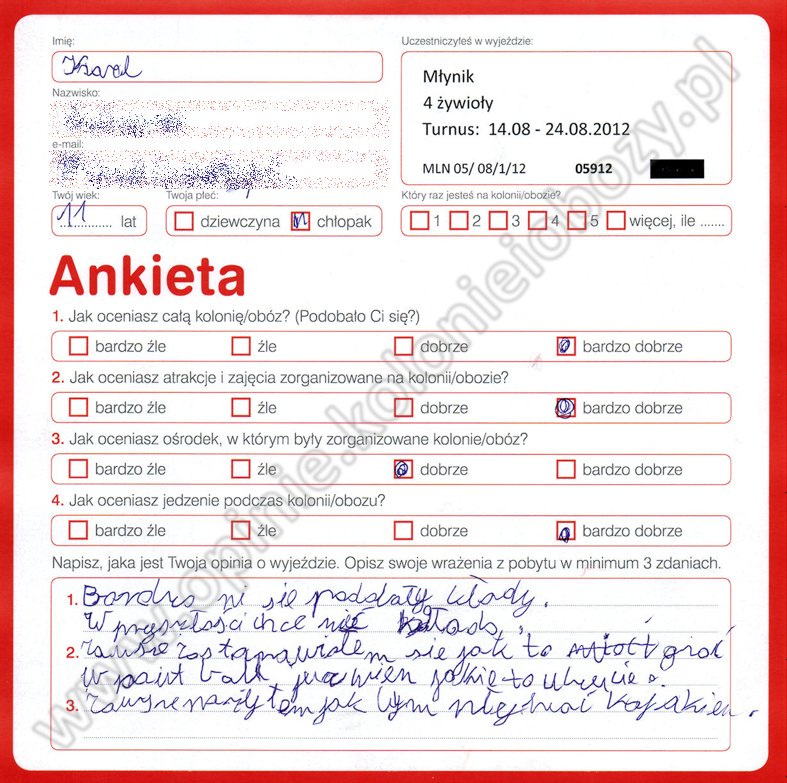 Imię:
Karol
Nazwisko:
e-mail:
Twój wiek:
11 lat
Twoja płeć:
dziewczyna chłopak
Uczestniczyłeś w wyjeździe:
Młynik
4 żywioły
Turnus: 14.08 - 24.08.2012
MLN 05/ 08/1/12 05912
Który raz jesteś na kolonii/obozie?
1 2 3 4 5 więcej, ile .......
Ankieta
1. Jak oceniasz całą kolonię/obóz? (Podobało Ci się?)
bardzo źle źle dobrze bardzo dobrze
2. Jak oceniasz atrakcje i zajęcia zorganizowane na kolonii/obozie?
bardzo źle źle dobrze bardzo dobrze
3. Jak oceniasz ośrodek, w którym były zorganizowane kolonie/obóz?
bardzo źle źle dobrze bardzo dobrze
4. Jak oceniasz jedzenie podczas kolonii/obozu?
bardzo źle źle dobrze bardzo dobrze
Napisz, jaka jest Twoja opinia o wyjeździe. Opisz swoje wrażenia z pobytu w minimum 3 zdaniach.
1. Bardzo mi sie
W przyszłości chce
2. zawsze zastanawiałem sie jak to grać
w paint ball
3. zawsze jak bym kajakiem.
www.opinie.kolonieiobozy.pl